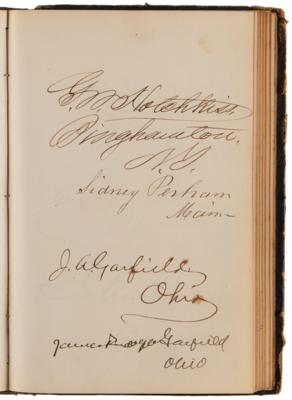 G. W. Hotchkiss.
Binghamton.
N.Y.
Sidney Perham
Maine
J. A. Garfield,
Ohio
James Garfield
Ohio